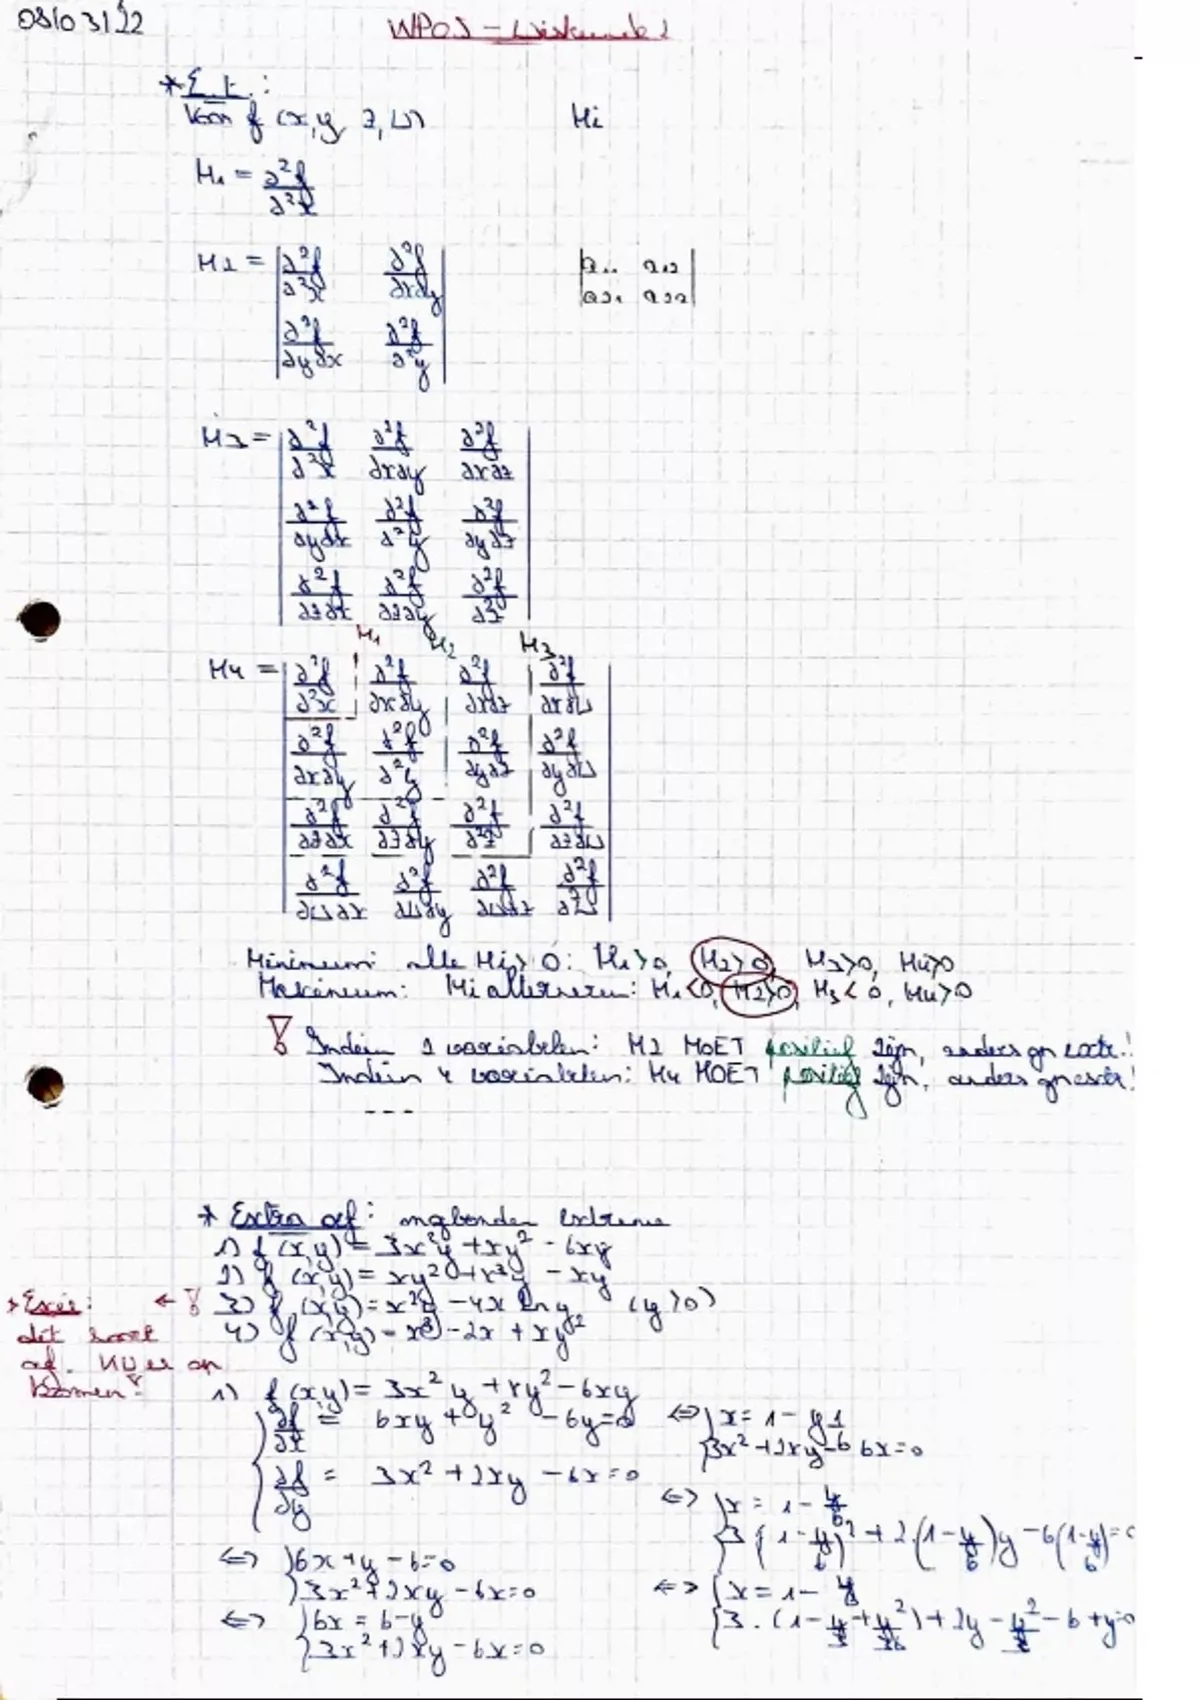 08/03/22
WPOS - Wiskunde 2
* E.t.:
Voor f (x, y, z, u) Hi
H1 = ∂²f/∂²x
H2 = |∂²f/∂²x ∂²f/∂x∂y| |a11 a12|
|∂²f/∂y∂x ∂²f/∂²y| |a21 a22|
H3 = |∂²f/∂²x ∂²f/∂x∂y ∂²f/∂x∂z|
|∂²f/∂y∂x ∂²f/∂²y ∂²f/∂y∂z|
|∂²f/∂z∂x ∂²f/∂z∂y ∂²f/∂²z|
H1 H2 H3
H4 = |∂²f/∂²x ∂²f/∂x∂y ∂²f/∂x∂z ∂²f/∂x∂u|
|∂²f/∂x∂y ∂²f/∂²y ∂²f/∂y∂z ∂²f/∂y∂u|
|∂²f/∂z∂x ∂²f/∂z∂y ∂²f/∂²z ∂²f/∂z∂u|
|∂²f/∂u∂x ∂²f/∂u∂y ∂²f/∂u∂z ∂²f/∂²u|
Minimum: alle Hi > 0: H1>0, H2>0, H3>0, H4>0
Maximum: Hi alterneren: H1<0, H2>0, H3<0, H4>0
! Indien 2 variabelen: H2 MOET positief zijn, anders gn extr.!
Indien 4 variabelen: H4 MOET positief zijn, anders gn extr!
---
* Extra oef: ongebonden extrema
1) f (x,y) = 3x²y + xy² - 6xy
2) f (x,y) = xy² + x³y - xy
3) f (x,y) = x²y - 4x ln y (y>0)
4) f (x,y) = x³ - 2x + xy²
dit soort
oef. er op
komen!
1) f (x,y) = 3x²y + xy² - 6xy
{∂f/∂x = 6xy + y² - 6y = 0 <=> {x = 1 - y1
3x² + 2xy - 6 6x = 0
{∂f/∂y = 3x² + 2xy - 6x = 0
<=> {x = 1 - y/6
3 (1 - y/6)² + 2.(1 - y/6)y - 6(1 - y/6) = 0
<=> {6x + y - 6 = 0
3x² + 2xy - 6x = 0
<=> {x = 1 - y/6
3.(1 - y/3 + y²/36) + 2y - y²/3 - 6 + y = 0
<=> {6x = 6 - y
3x² + 2xy - 6x = 0